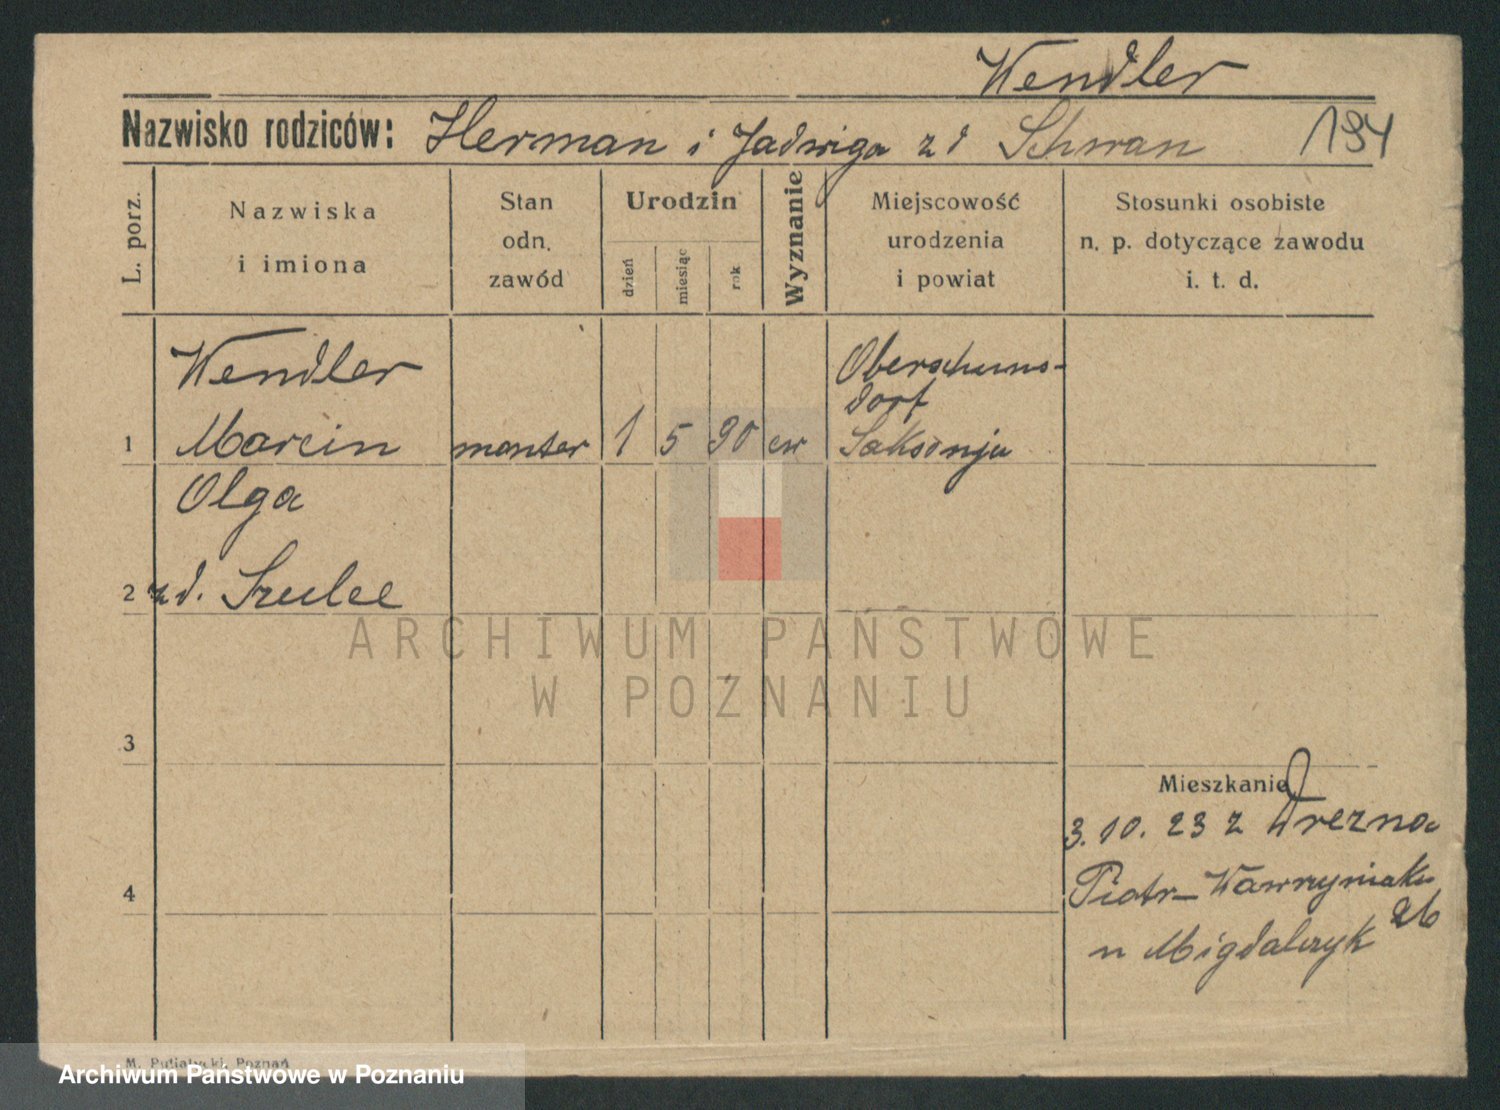 Wendler
Nazwisko rodziców: Herman i Jadwiga zd Schwan 194
L. porz.
Nazwiska
i imiona
Stan
odn.
zawód
Urodzin
dzień
miesiąc
rok
Wyznanie
Miejscowość
urodzenia
i powiat
Stosunki osobiste
n. p. dotyczące zawodu
i. t. d.
Wendler
1 Marcin monter 1 5 90 ew
Oberschuns-
dorf
Saksonju
Olga
2 zd. Szulce
3
4
Mieszkanie
3.10.23 z Drezna
Piotr-Wawrzyniaka
26
n Migdalczyk
M. Putiatycki, Poznań
ARCHIWUM PAŃSTWOWE
W POZNANIU
Archiwum Państwowe w Poznaniu